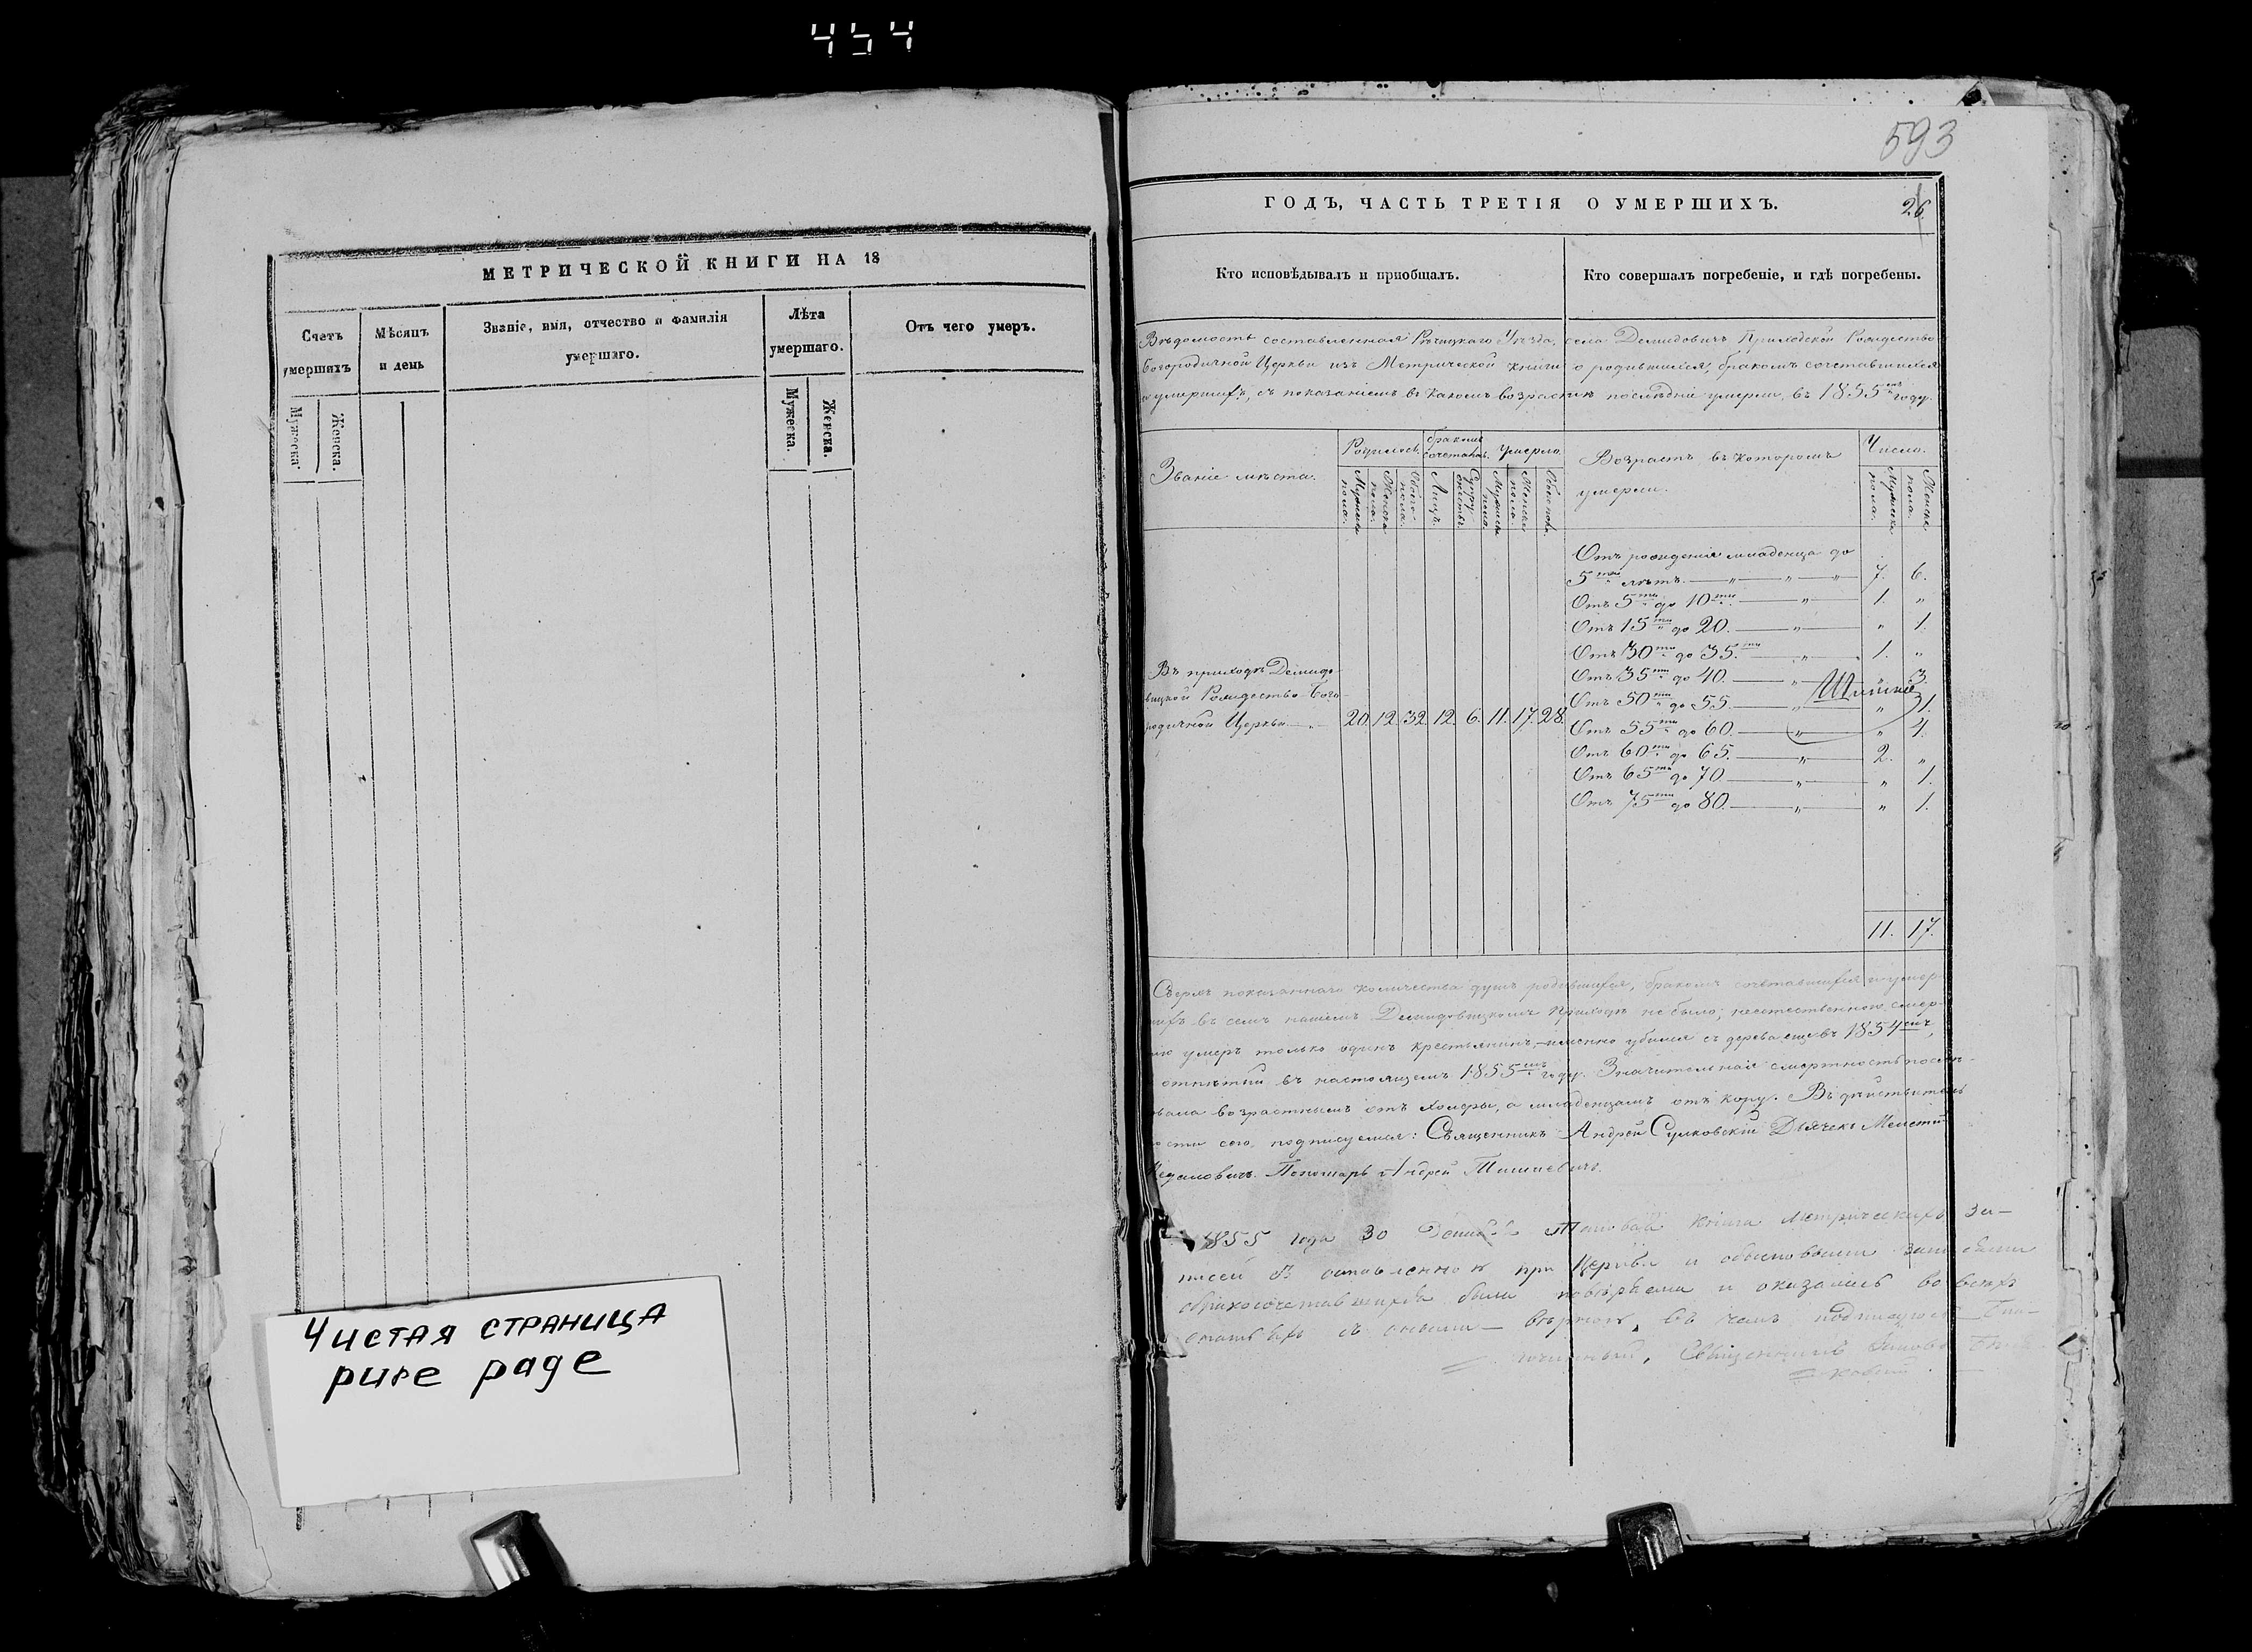 454
МЕТРИЧЕСКОЙ КНИГИ НА 18
Счетъ умершихъ
Мѣсяцъ и день
Званіе, имя, отчество и фамилія умершаго.
Лѣта умершаго.
Отъ чего умеръ.
Мужеска.
Женска.
Мужеска.
Женска.
Чистая страница
pure page
593
ГОДЪ, ЧАСТЬ ТРЕТІЯ О УМЕРШИХЪ.
26
Кто исповѣдывалъ и пріобщалъ.
Кто совершалъ погребеніе, и гдѣ погребены.
Вѣдомость составленная Рѣчицкаго Уѣзда, села Демидовичъ Приходской Рождество
Богородичной Церкви изъ Метрической книги о родившихся, бракомъ сочетавшихся
и умершихъ, съ показаніемъ въ какомъ возрастѣ послѣдніе умерли, въ 1855мъ году.
Званіе мѣста.
Родилось.
бракомъ сочеталось.
Умерло.
Возрастъ въ которомъ
умерли.
Число.
Мужеска пола.
Женска пола.
Обоего пола.
Лицъ.
Супружествъ.
Мужеска пола.
Женска пола.
Обоего пола.
Мужеска пола.
Женска пола.
Отъ рожденія младенца до
5ти лѣтъ. — „ — „ — „ — 7. 6.
Отъ 5ти до 10ти. — „ — 1. „
Отъ 15ти до 20. — „ — „ 1.
Отъ 30ти до 35.ти — „ — 1. „
Въ приходѣ Демидо-
Отъ 35ти до 40. — „ — „ 3.
вицкой Рождество-Бого-
Отъ 50ти до 55. — „ — „ 1.
родичной Церкви — „ 20. 12. 32. 12. 6. 11. 17. 28.
Отъ 55ти до 60. — „ — „ 4.
Отъ 60ти до 65. — „ — 2. „
Отъ 65ти до 70. — „ — „ 1.
Отъ 75ти до 80. — „ — „ 1.
11. 17.
Сверхъ показаннаго количества душъ родившихся, бракомъ сочетавшихся и умер-
шихъ въ семъ нашемъ Демидовицкомъ приходѣ не было; неестественною смер-
тію умеръ только одинъ крестьянинъ, — именно убился съ дерева еще въ 1854мъ,
отпѣтый въ настоящемъ 1855мъ году. Значительная смертность послѣ-
довала возрастнымъ отъ холеры, а младенцамъ отъ кору. Въ дѣйствитель-
ности сего подписуемся: Священникъ Андрей Сулковскій Дьячекъ
Пономарь Андрей
1855 года 30 книга метрическихъ за-
писей при Церкви и
были повѣряемы и оказались во всѣхъ
съ оными — вѣрною, въ чемъ
Священникъ